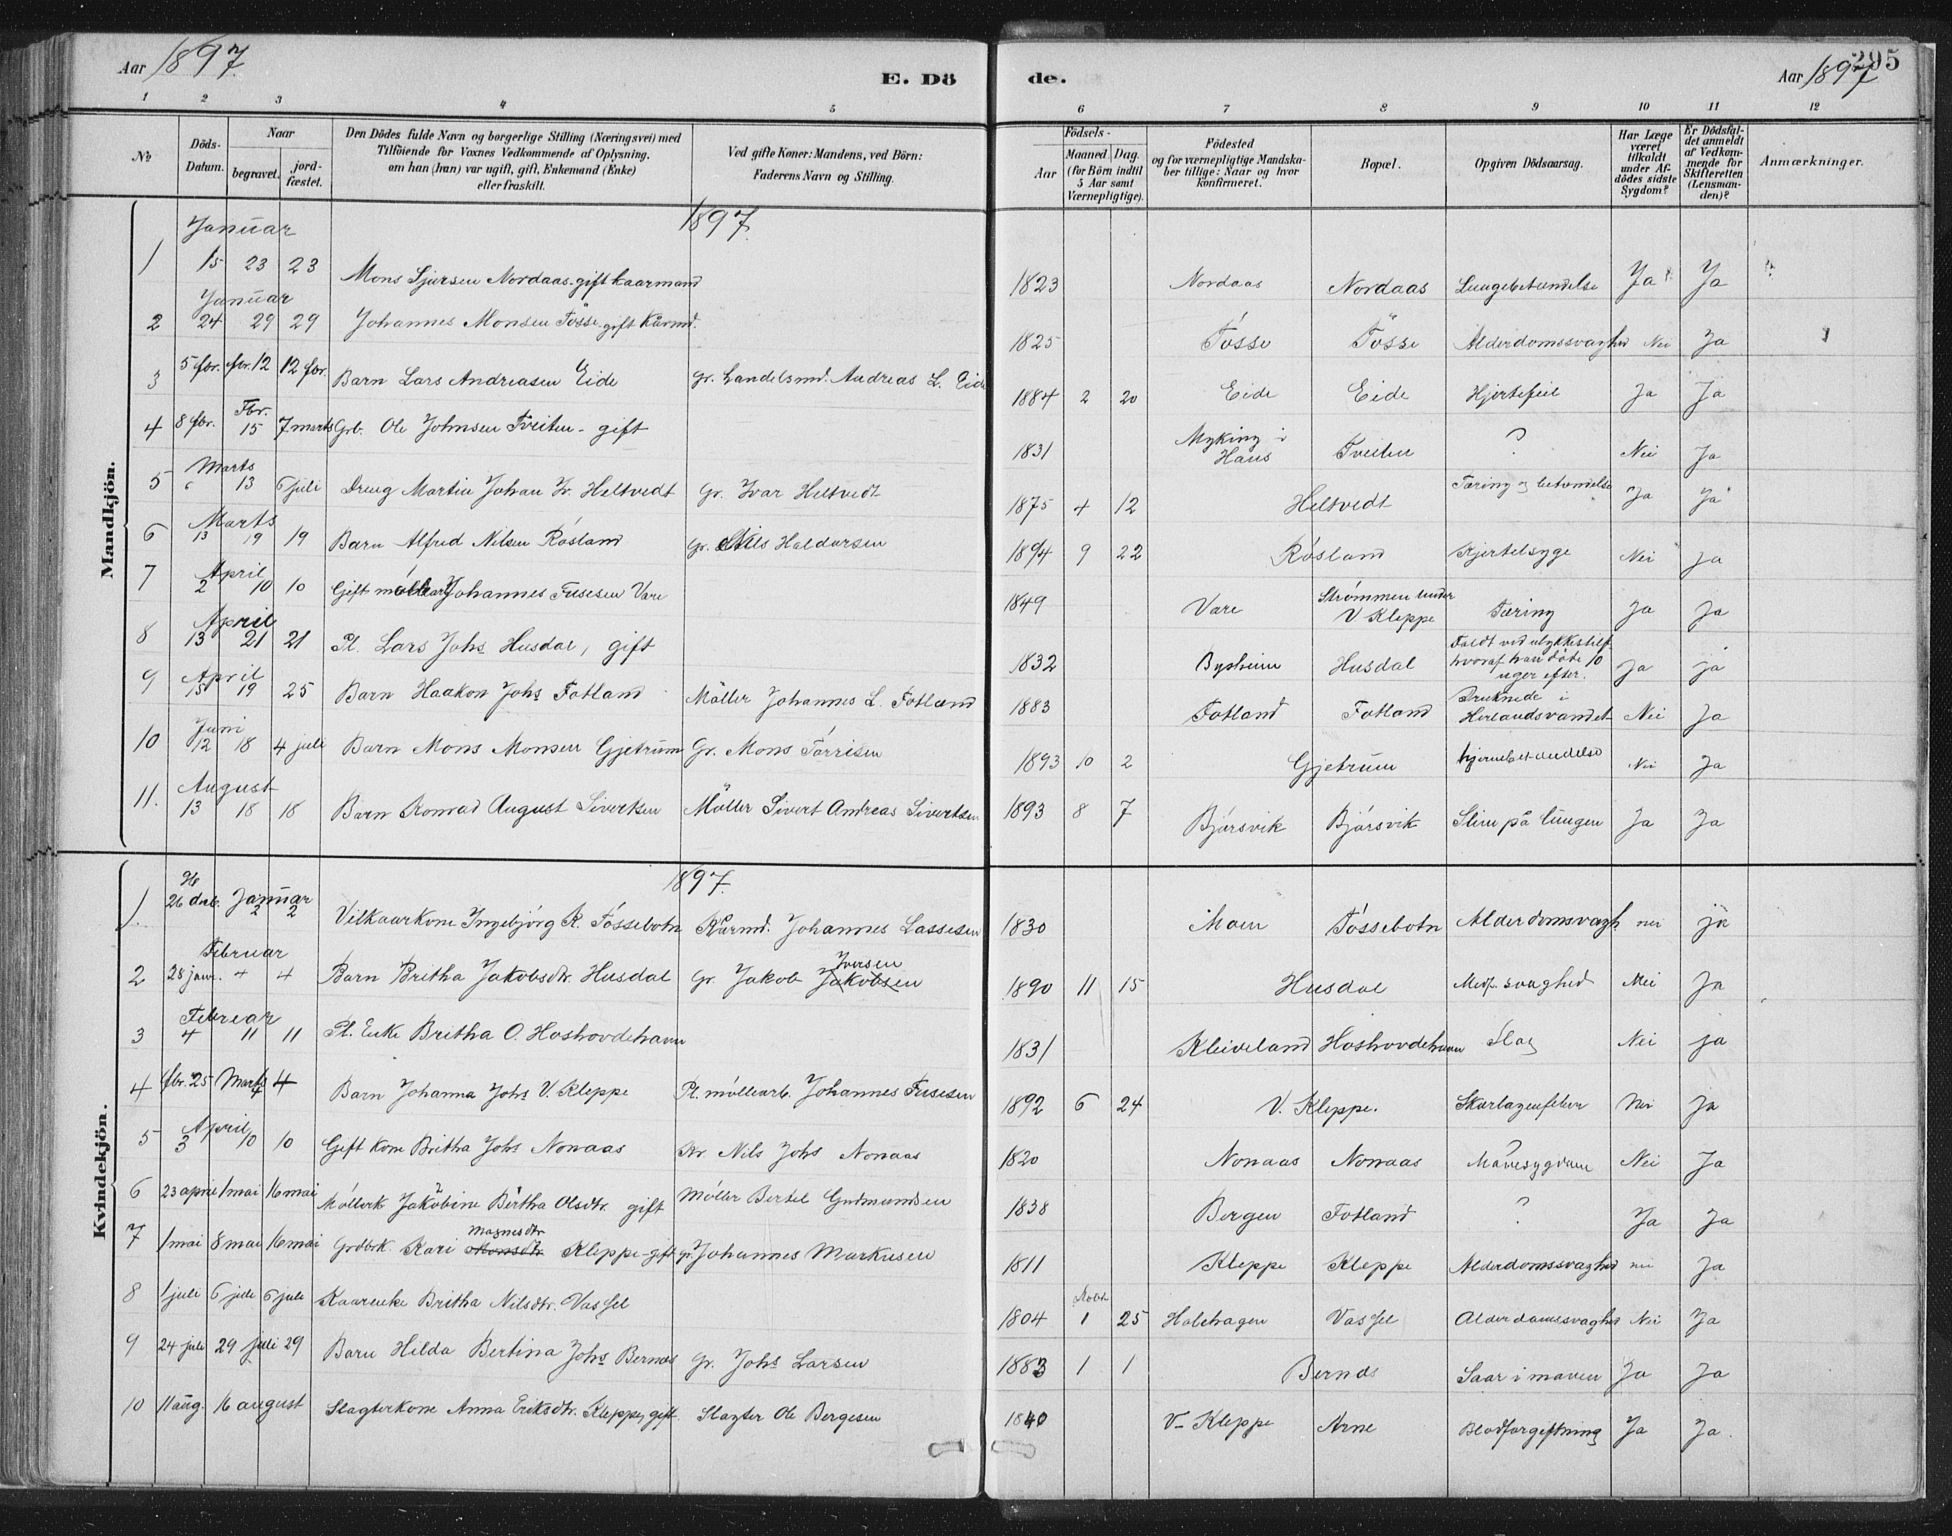 Aar 1897.
E. Dö
de.
Aar 1897
295
1 2 3 4 5 6 7 8 9 10 11 12
№
Döds-Datum.
Naar
begravet.
jordfæstet.
Den Dödes fulde Navn og borgerlige Stilling (Næringsvei) med
Tilföiende for Voxnes Vedkommende af Oplysning,
om han (hun) var ugift, gift, Enkemand (Enke)
eller fraskilt.
Ved gifte Koner: Mandens, ved Börn:
Faderens Navn og Stilling.
Födsels-
Aar
Maaned. Dag.
(for Börn indtil
5 Aar samt
Værnepligtige).
Födested
og for værnepligtige Mandskaber tillige: Naar og hvor
konfirmeret.
Bopæl.
Opgiven Dödsaarsag.
Har Læge været tilkaldt under Afdödes sidste Sygdom?
Er Dödsfaldet anmeldt af Vedkommende for Skifteretten (Lensmanden)?
Anmærkninger.
Mandkjön.
1897.
1 Januar 15 23 23 Mons Sjursen Nordaas - gift kaarmand 1823 Nordaas Nordaas Lungebetændelse Ja Ja
2 Januar 24 29 29 Johannes Monsen Fösse - gift Kårmd. 1825 Fösse Fösse Alderdomssvaghed Nei Ja
3 5 fbr. fbr. 12 12 fbr. Barn Lars Andreasen Eide Gr. Landelsmd. Andreas L. Eide 1884 2 20 Eide Eide Hjertefeil Ja Ja
4 8 fbr. Fbr. 15 7 marts Grb. Ole Johnsen Tveiten - gift 1831 Myking i Haus Tveiten ? Nei Ja
5 Marts 6 13 6 juli Dreng Martin Johan Iv. Heltvedt Gr. Ivar Heltvedt 1875 4 12 Heltvedt Tæring og betændelse Ja Ja
6 Marts 13 19 19 Barn Alfred Nilsen Røsland Gr. Nils Haldorsen 1894 9 22 Røsland Kjertelsyge Nei Ja
7 April 2 10 10 Gift møllearb Johannes Fusesen Vare 1849 Vare Strömmen under V Kleppe Tæring Ja Ja
8 April 13 21 21 Pl. Lars Johs Husdal, gift 1832 Bysheim Husdal Faldt ved ulykkestilf. hvoraf han døde 10 uger efter. Ja ja
9 April 15 19 25 Barn Haakon Johs Fotland Möller Johannes L. Fotland 1883 Fotland Fotland Druknede i Herlandsvandet Nei Ja
10 Juni 12 18 4 juli Barn Mons Monsen Gjetrum Gr. Mons Torrisen 1893 10 2 Gjetrum hjernebetændelse Nei Ja
11. August 13 18 18 Barn Konrad August Sivertsen Möller Sivert Andreas Sivertsen 1893 8 7 Bjørsvik Bjørsvik Slim på lungen Ja Ja
Kvindekjön.
1897.
1. 96 26 decb. Januar 2 2 Vilkaarkone Ingebjörg K. Fössebotn Kårmd. Johannes Lassesen 1830 Moen Fössebotn Alderdomsvagh nei ja
2 28 janr. Februar 4 4 Barn Britha Jakobsdtr. Husdal Gr. Jakob Jakobsen Iversen 1890 11 15 Husdal Medf. svaghed Nei Ja
3 Februar 4 11 11 Pl. Enke Britha O. Hoshovdehavn 1831 Kleiveland Hoshovdehavn Slag Nei ja
4 fbr. 25 Marts 4 4 Barn Johanna Johs V. Kleppe Pl. møllearb. Johannes Fusesen 1892 6 24 V. Kleppe. Skarlagenfeber Nei ja
5 April 3 10 10 Gift kone Britha Johs Nonaas Kr. Nils Johs Nonaas 1820 Nonaas Nonaas Mavesygdom ? Nei Ja
6 23 april 1 mai 16 mai Møllerk Jakobine Bertha Olsdtr. gift Møller Bertel Gudmundsen 1838 Bergen Fotland ? Ja Ja
7 1 mai 8 mai 16 mai Grdbrk. Kari Monsdtr. Magnesdtr Kleppe - gift gr. Johannes Markusen 1811 Kleppe Kleppe Alderdomssvaghed nei Ja
8 1 juli 6 juli 6 juli Kaarenke Britha Nilsdtr. Vassel 1804 1 25 Holehagen Vassel Alderdomssvaghed Nei Ja
9 24 juli 29 juli 29 Barn Hilda Bertina Johs Bernæs Gr. Johs Larsen 1883 1 1 Bernæs Saar i maven Ja Ja
10 11 aug. 16 august Slagterkone Anna Eriksdtr. Kleppe, gift Slagter Ole Børgesen 1840 V- Kleppe Arne Blodforgiftning Ja Ja.